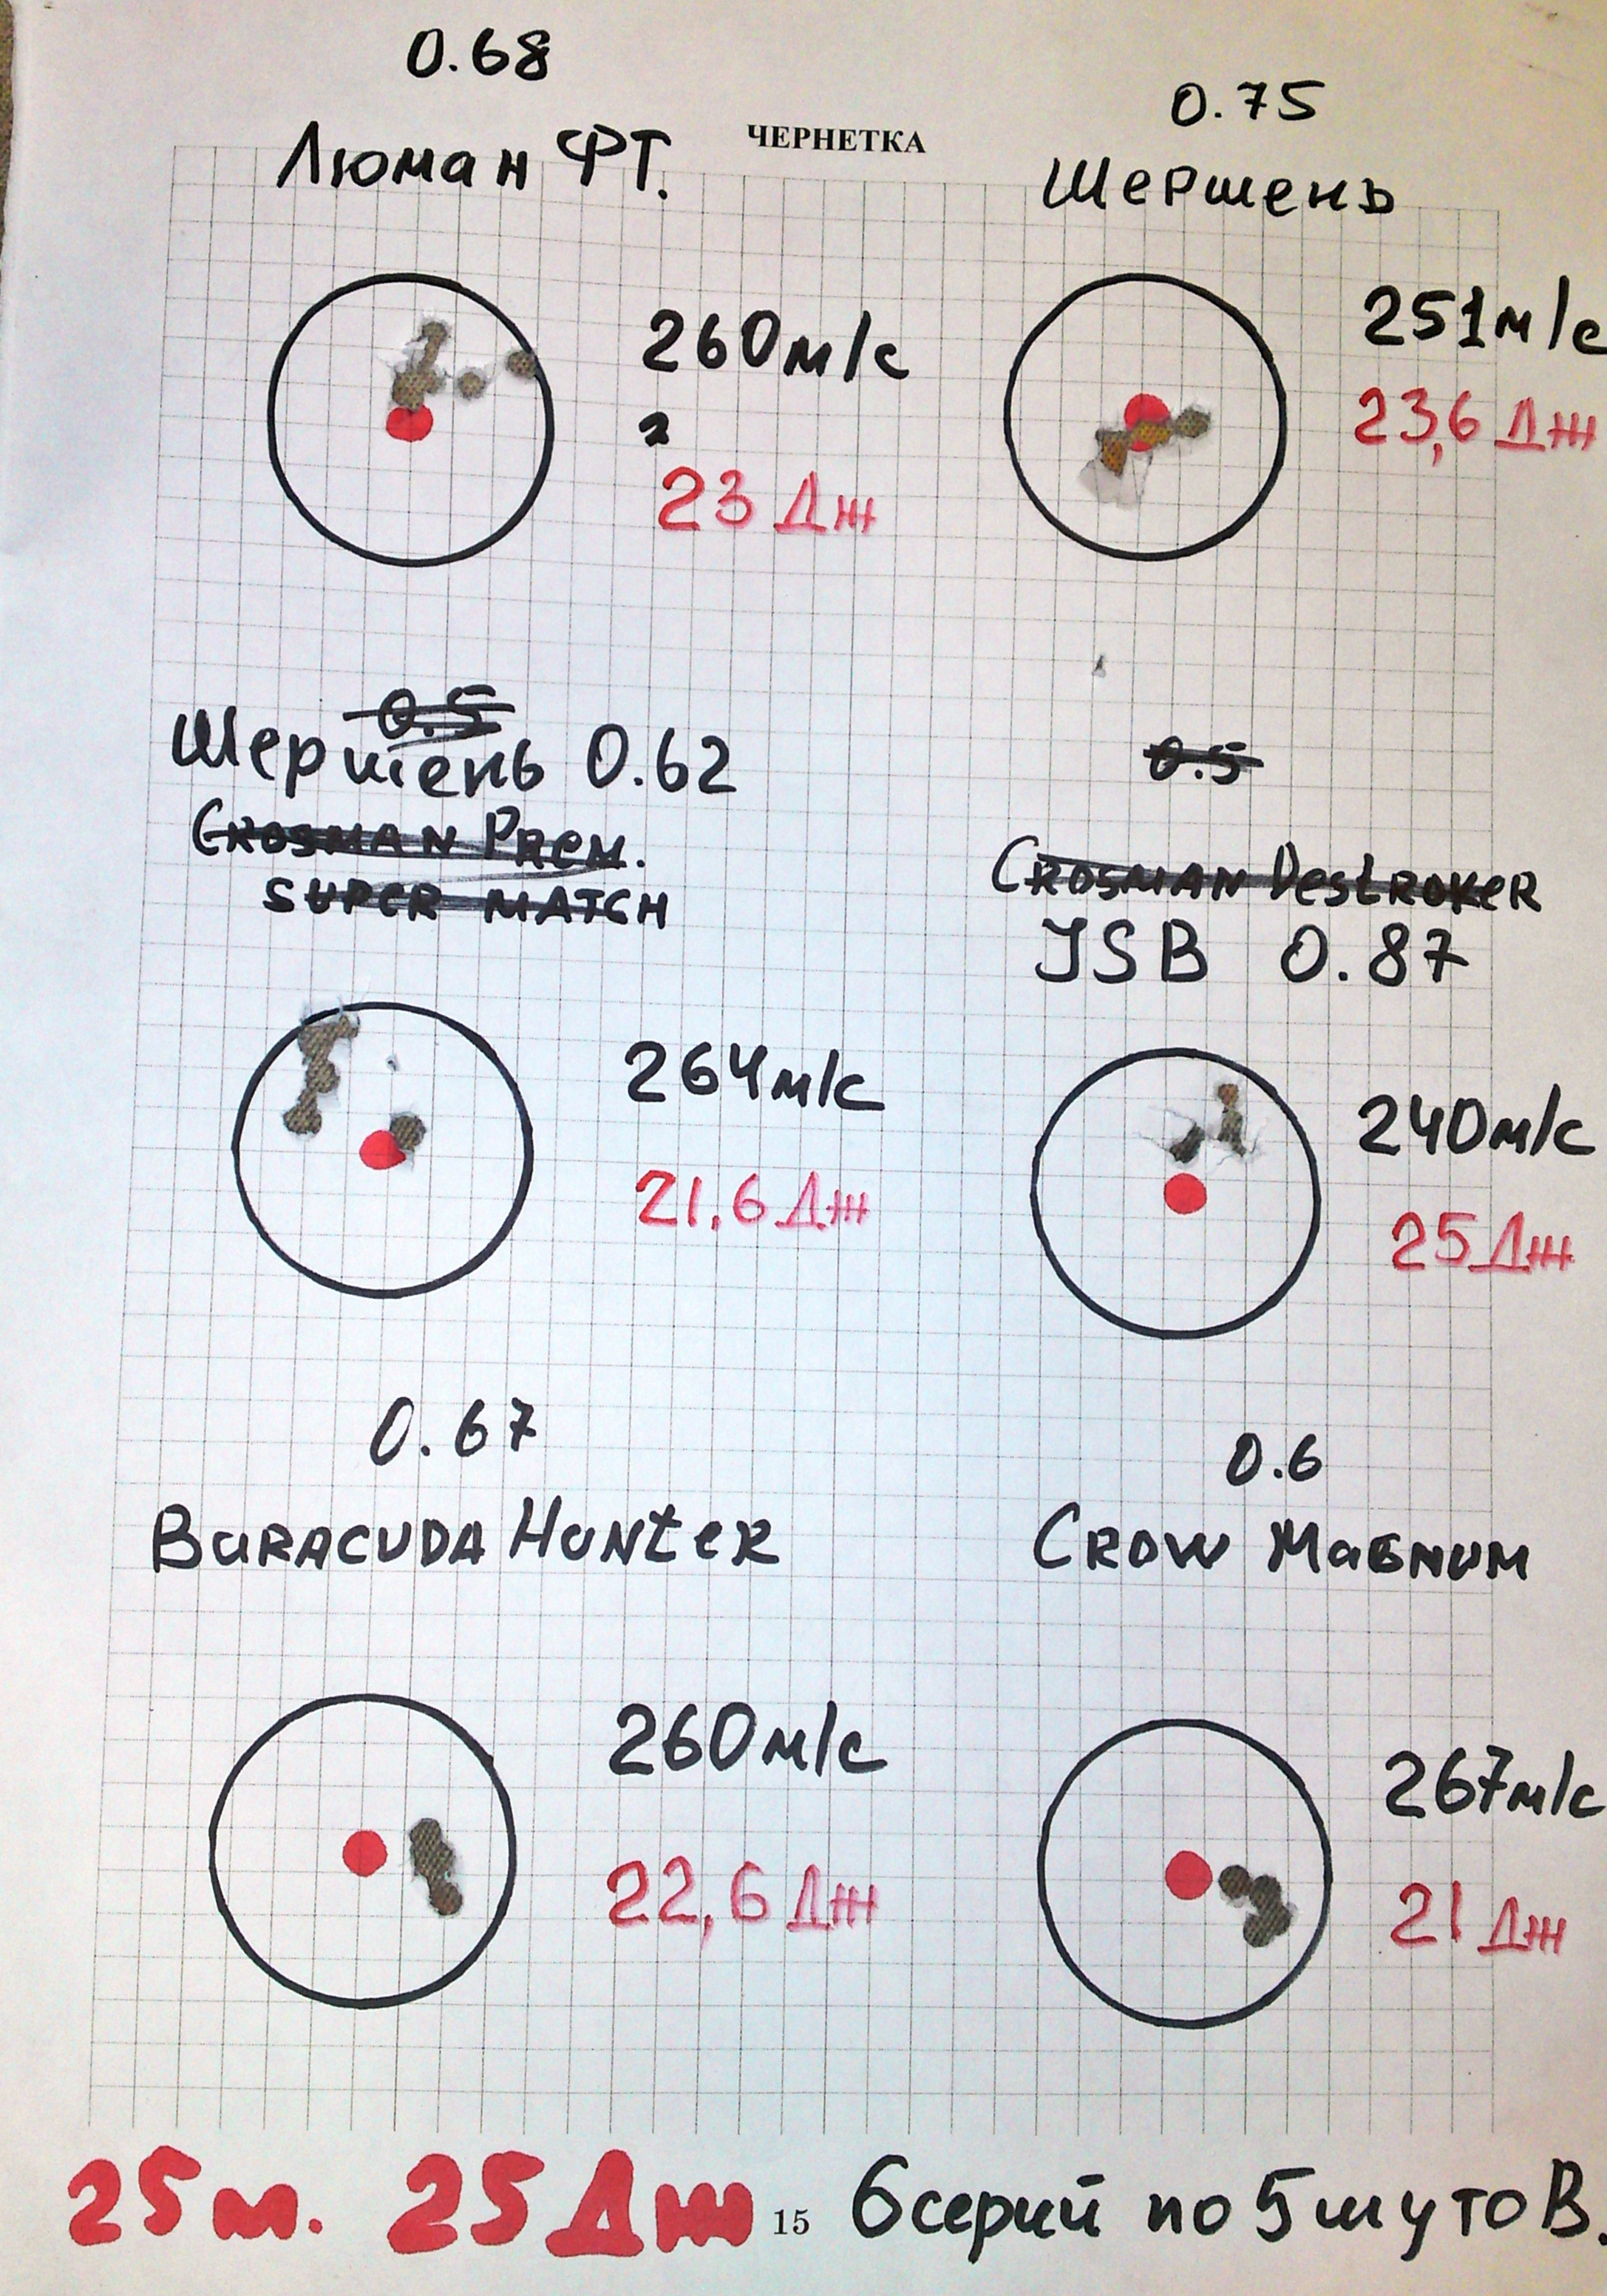 0.68
Люман ФТ.
ЧЕРНЕТКА
0.75
Шершень
260м/с
23 Дж
251м/с
23,6 Дж
0.5
Шершень 0.62
CROSMAN PREM.
SUPER MATCH
0.5
CROSMAN DestROYeR
JSB 0.87
264м/с
21,6 Дж
240м/с
25 Дж
0.67
BaRACUDA HUNteR
0.6
CROW MaGNUM
260м/с
22,6 Дж
267м/с
21 Дж
25м. 25 Дж 15 6 серий по 5 шутов.